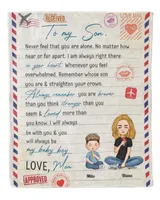 RECEIVED
To my Son,
Never feel that you are alone. No matter how
near or far apart. I am always right there
in your heart! Whenever you feel
overwhelmed. Remember whose son
you are & straighten your crown.
Always remember you are braver
than you think, stronger than you
seem & loved more than
you know. I will always
be with you & you
will always be
my baby boy
LOVE, Mom
APPROVED
Mike